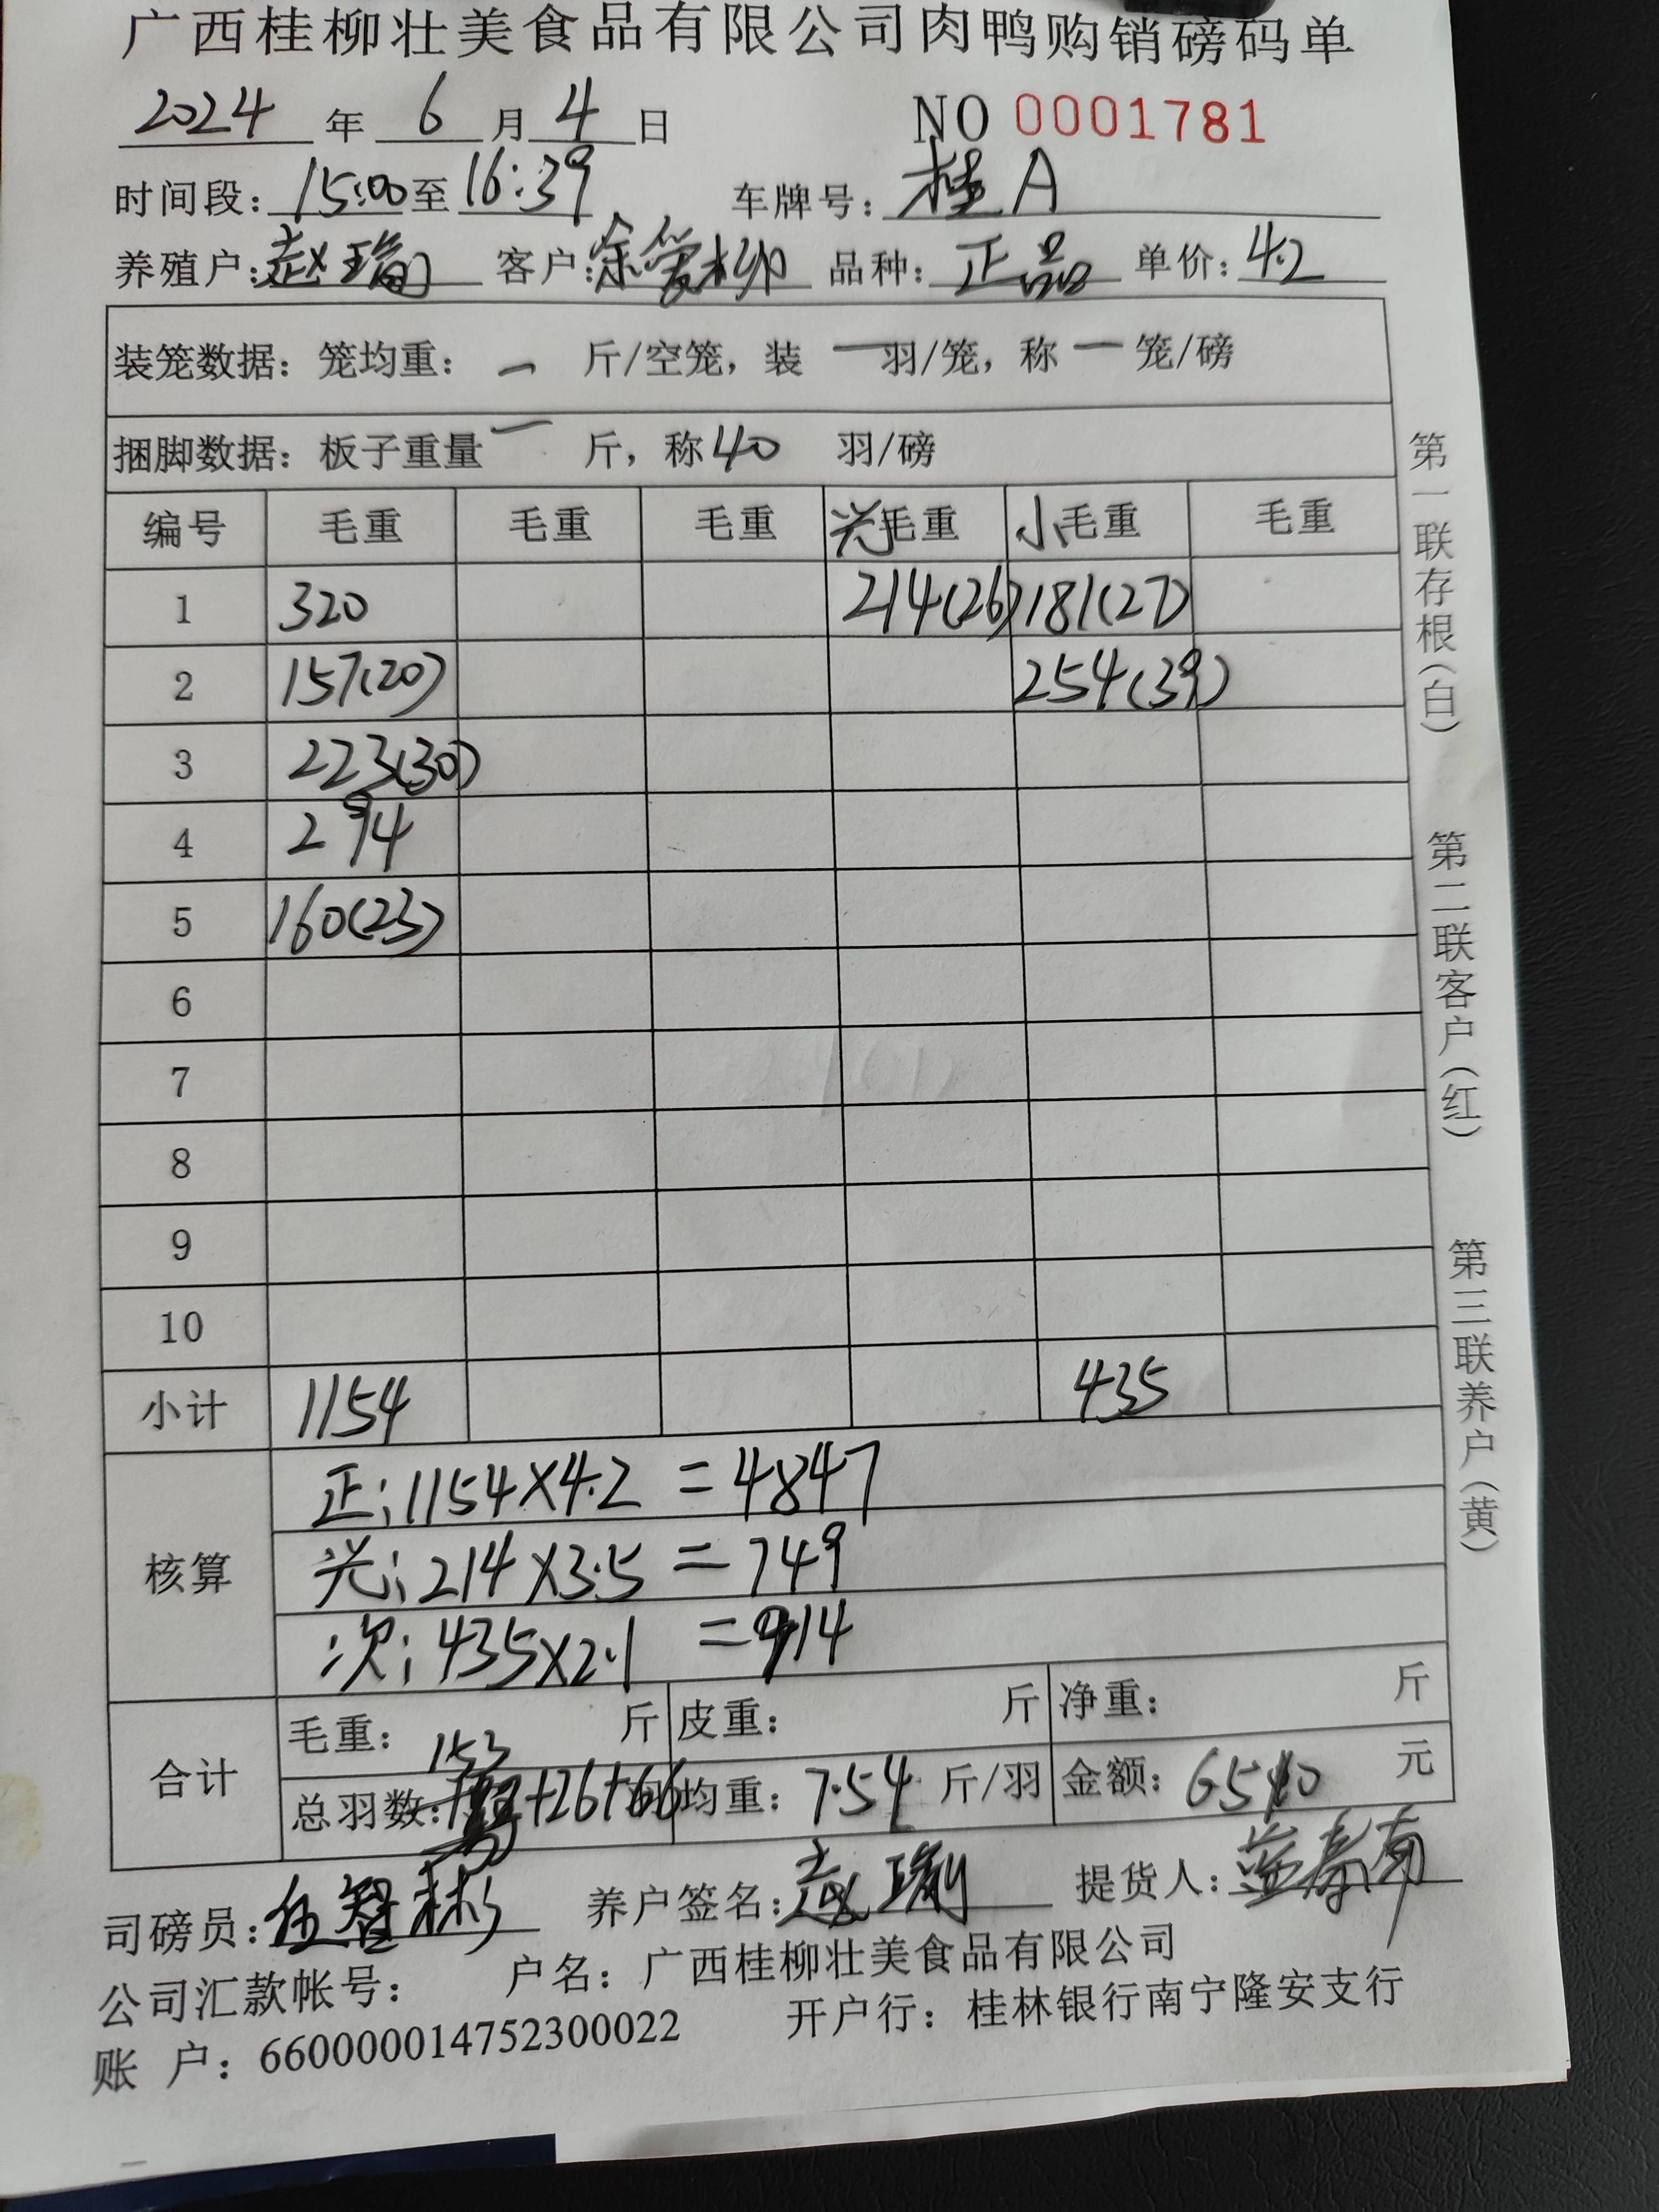 广西桂柳壮美食品有限公司肉鸭购销磅码单
2024 年 6 月 4 日 NO 0001781
时间段: 15:00 至 16:39 车牌号: 桂A
养殖户: 赵 客户: 余 柳 品种: 正品 单价: 4.2
装笼数据: 笼均重: 一 斤/空笼, 装 一 羽/笼, 称 一 笼/磅
捆脚数据: 板子重量 一 斤, 称 40 羽/磅
编号 毛重 毛重 毛重 光毛重 小毛重 毛重
1 320 214(26) 181(27)
2 157(20) 254(39)
3 223(30)
4 294
5 160(23)
6
7
8
9
10
小计 1154 435
核算
正: 1154×4.2 = 4847
光: 214×3.5 = 749
次: 435×2.1 = 914
合计
毛重: 斤 皮重: 斤 净重: 斤
153
总羽数: +26+66 羽 均重: 7.54 斤/羽 金额: 6510 元
司磅员: 伍智彬 养户签名: 赵 提货人: 蓝
公司汇款帐号: 户名: 广西桂柳壮美食品有限公司
账 户: 660000014752300022 开户行: 桂林银行南宁隆安支行
第一联存根(白) 第二联客户(红) 第三联养户(黄)